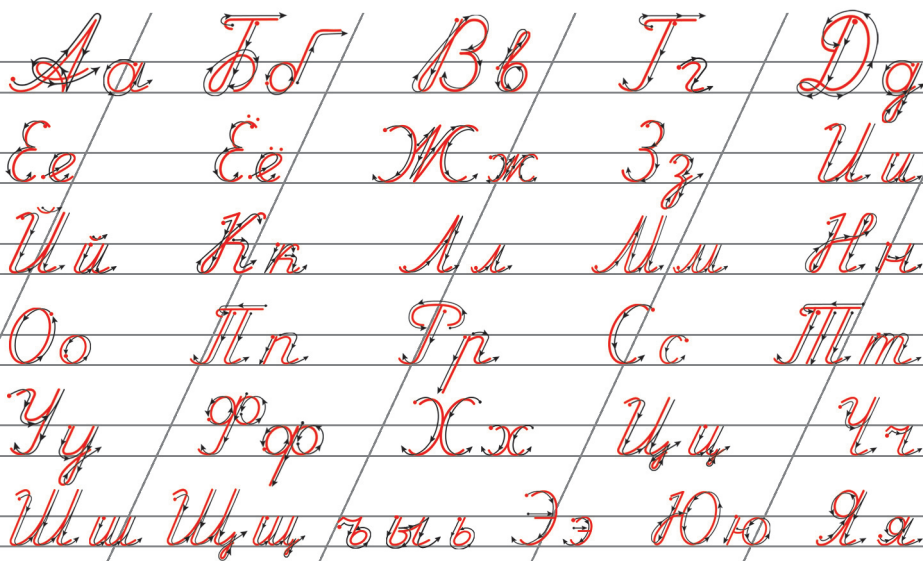 Аа Бб Вв Гг Дд
Ее Ёё Жж Зз Ии
Йй Кк Лл Мм Нн
Оо Пп Рр Сс Тт
Уу Фф Хх Цц Чч
Шш Щщ ъ ы ь Ээ Юю Яя